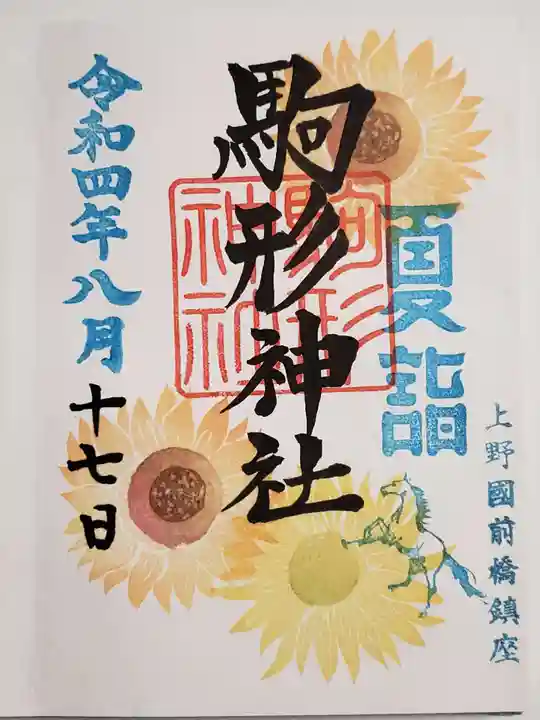 上野國前橋鎮座
夏詣
駒形神社
駒形
神社
令和四年八月十七日